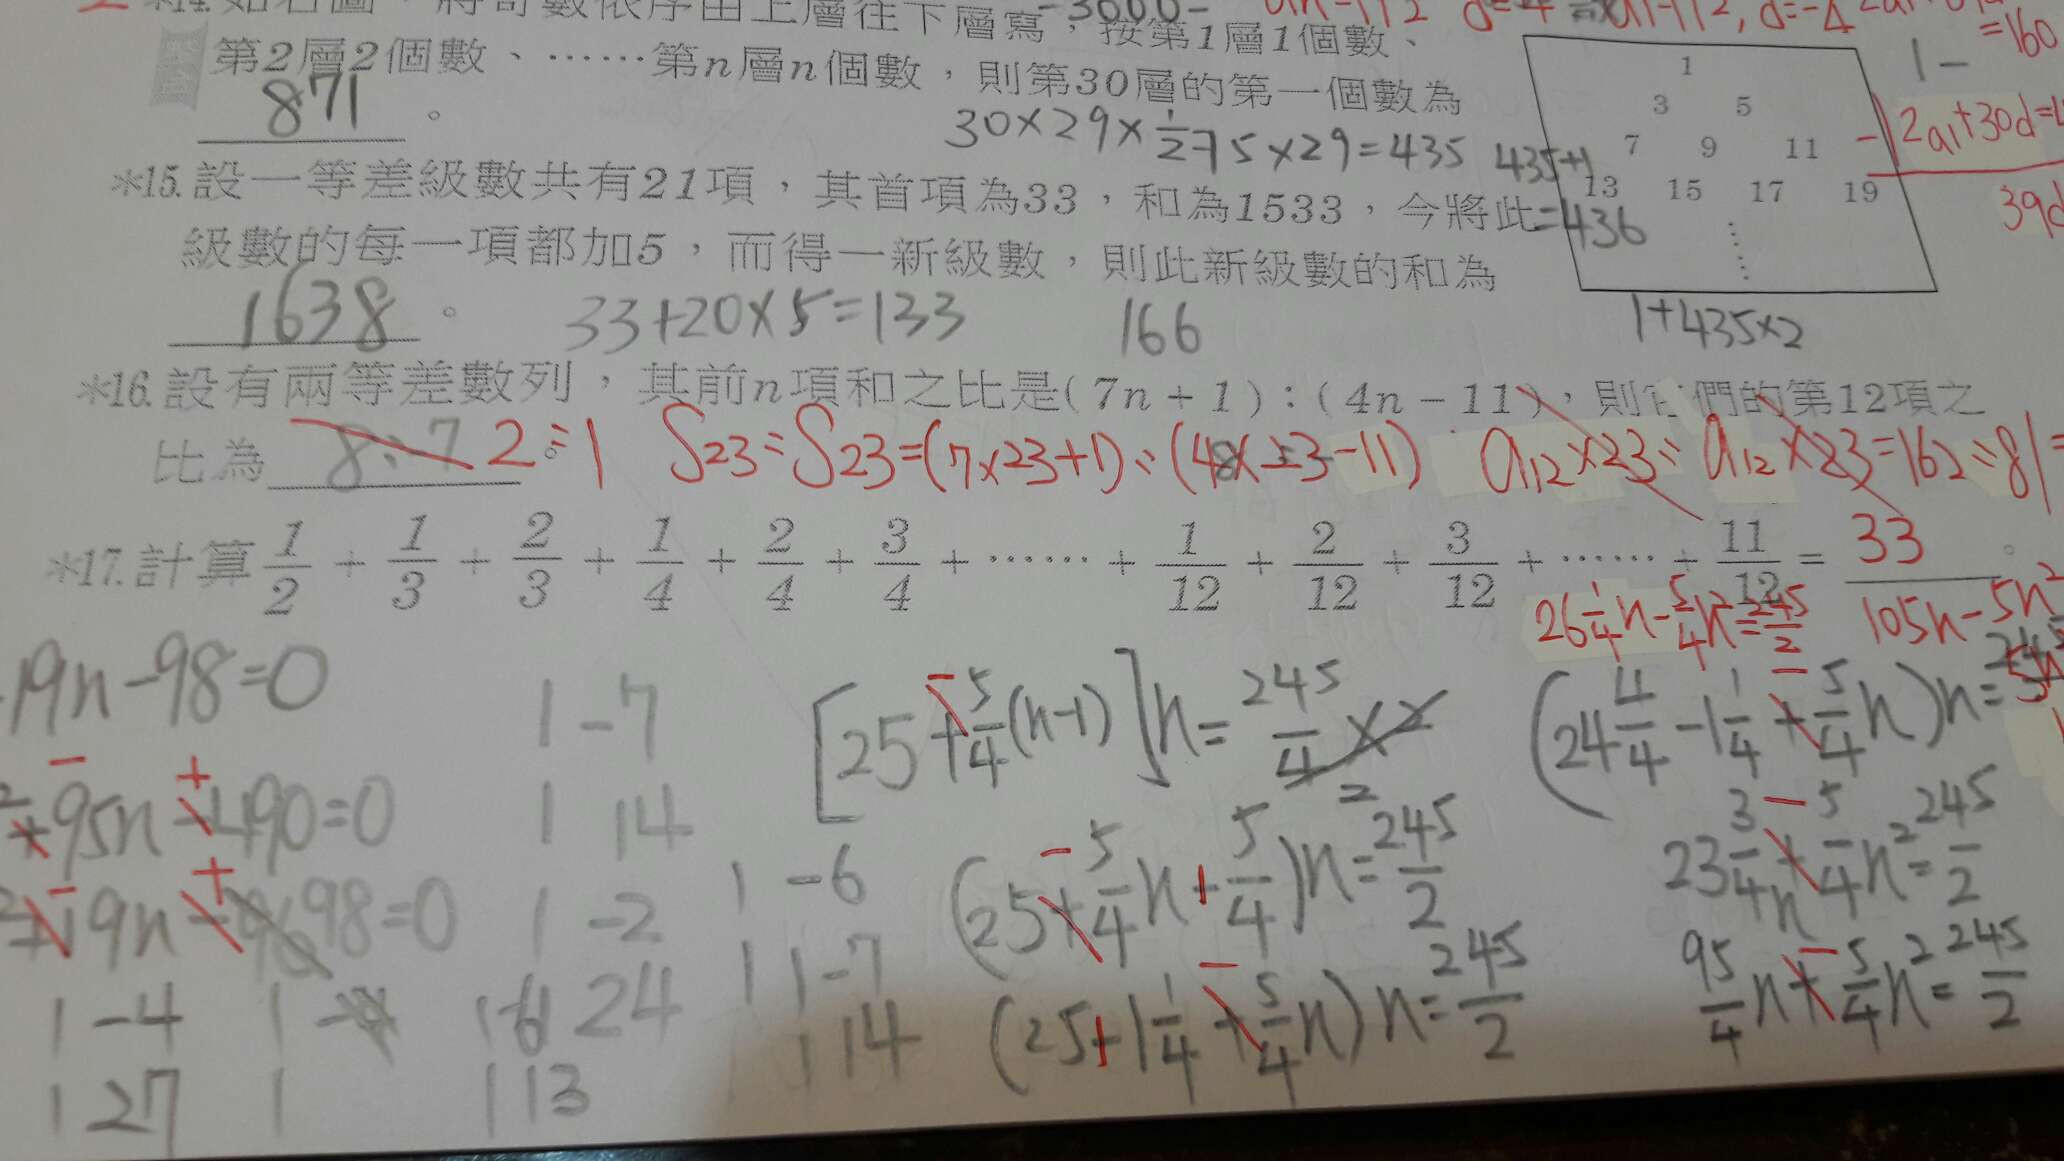 *14. 如右圖，將奇數依序由上層往下層寫，按第1層1個數、
第2層2個數、……第n層n個數，則第30層的第一個數為
871。
30×29×1/2 75×29=435 435+1
=436
1+435×2
1
3 5
7 9 11
13 15 17 19
⋮
=160
1-
2a1+30d=
39d
*15. 設一等差級數共有21項，其首項為33，和為1533，今將此
級數的每一項都加5，而得一新級數，則此新級數的和為
1638。 33+20×5=133 166
*16. 設有兩等差數列，其前n項和之比是(7n+1):(4n-11)，則它們的第12項之
比為 8:7 2:1。 S23:S23=(7×23+1):(4×23-11) a12×23:a12×23=162:81=
*17. 計算 1/2 + 1/3 + 2/3 + 1/4 + 2/4 + 3/4 + …… + 1/12 + 2/12 + 3/12 + …… + 11/12 = 33。
26 1/4 n - 5/4 n² = 245/2 105n-5n²
19n-98=0
95n+490=0
19n+98=0
1-4
1 27
1-7
1 14
1-2
1 24
1 13
1-6
1 1-7
1 14
[25-5/4(n-1)]n=245/4×2
(25-5/4n+5/4)n=245/2
(25+1 1/4-5/4n)n=245/2
(24 4/4-1 1/4-5/4n)n=
23 3/4 n-5/4n²=245/2
95/4n-5/4n²=245/2